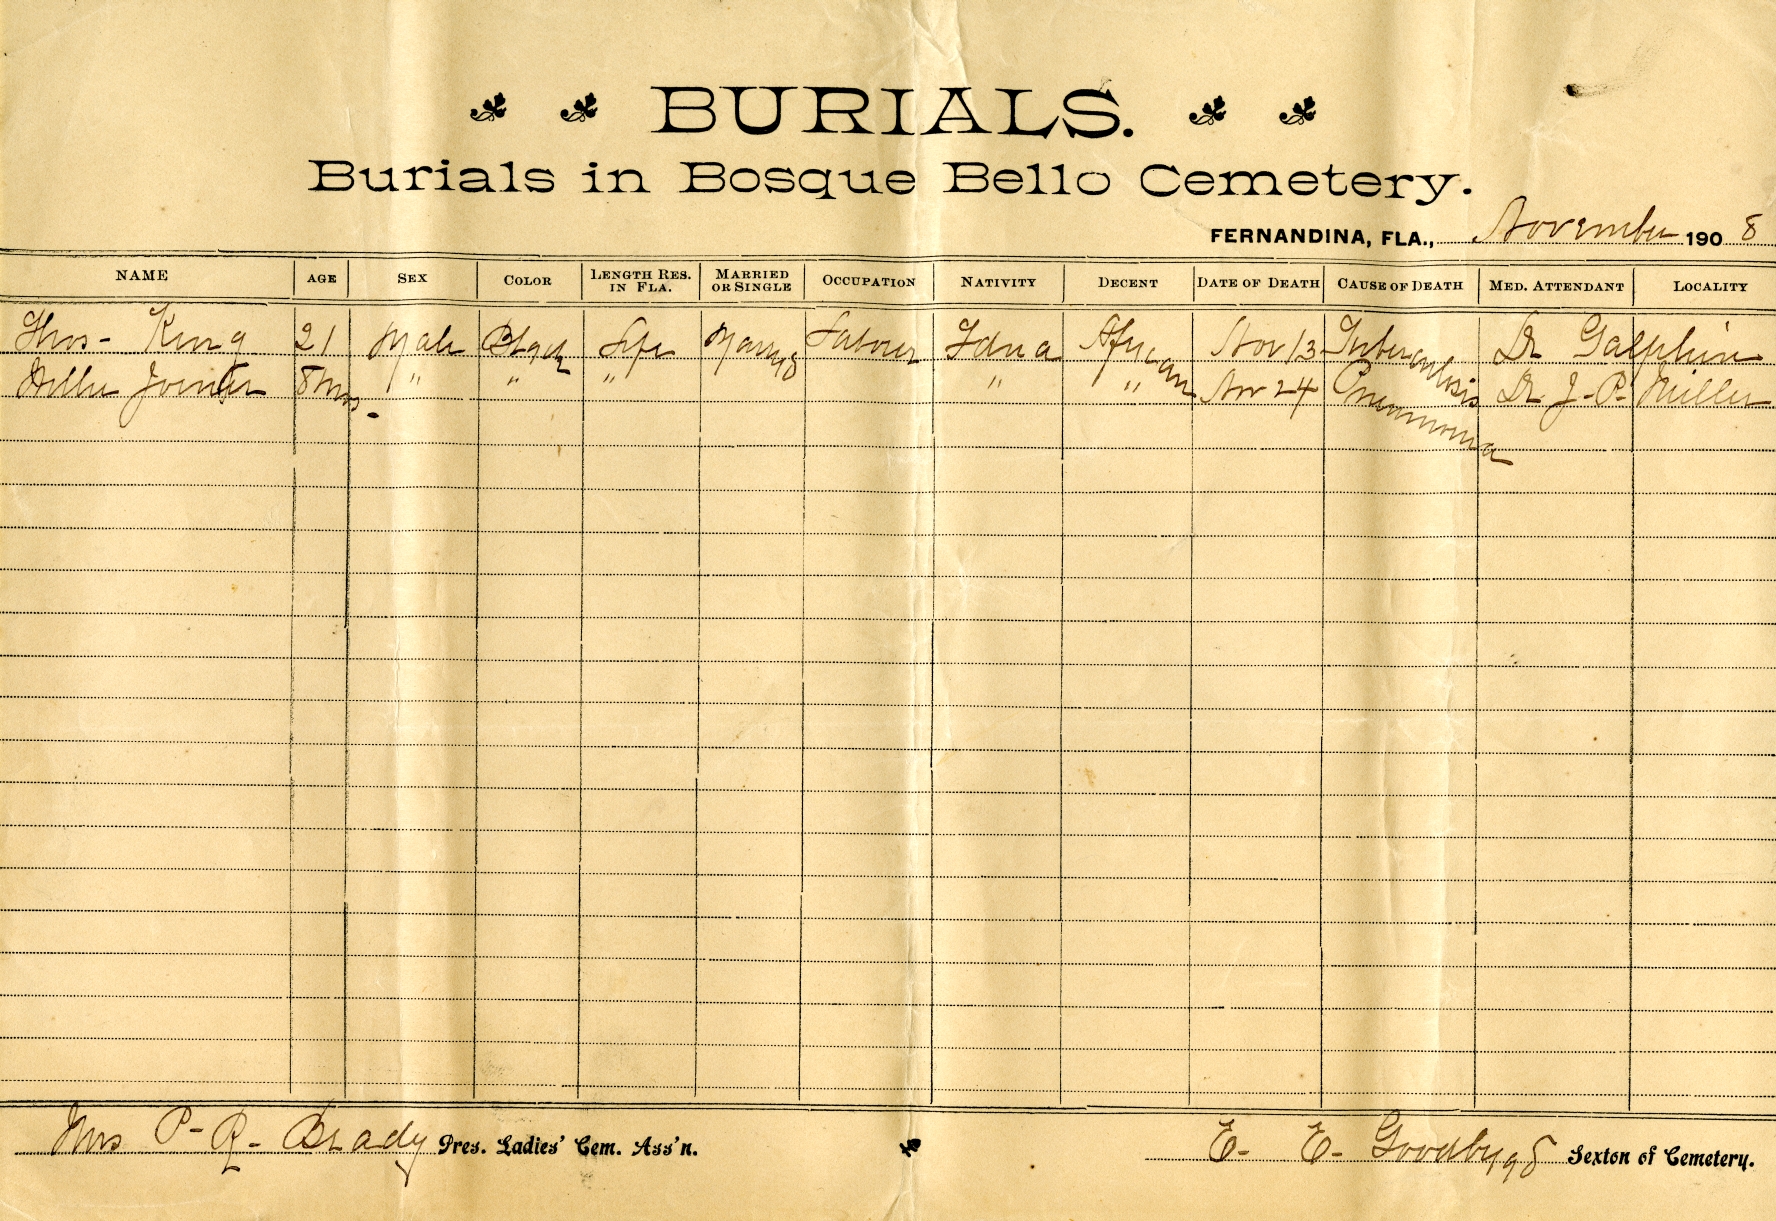 BURIALS.
Burials in Bosque Bello Cemetery.
FERNANDINA, FLA., November 1908
NAME AGE SEX COLOR LENGTH RES. IN FLA. MARRIED OR SINGLE OCCUPATION NATIVITY DECENT DATE OF DEATH CAUSE OF DEATH MED. ATTENDANT LOCALITY
Thos- King 21 Male Black Life Labour Fdna African Nov 13 Tuberculosis Dr Galphin
Jointer 8 mos- " " " " " Nov 24 Pneumonia Dr J-P- Miller
Mrs P-R- Brady Pres. Ladies' Cem. Ass'n.
E- E- Sexton of Cemetery.